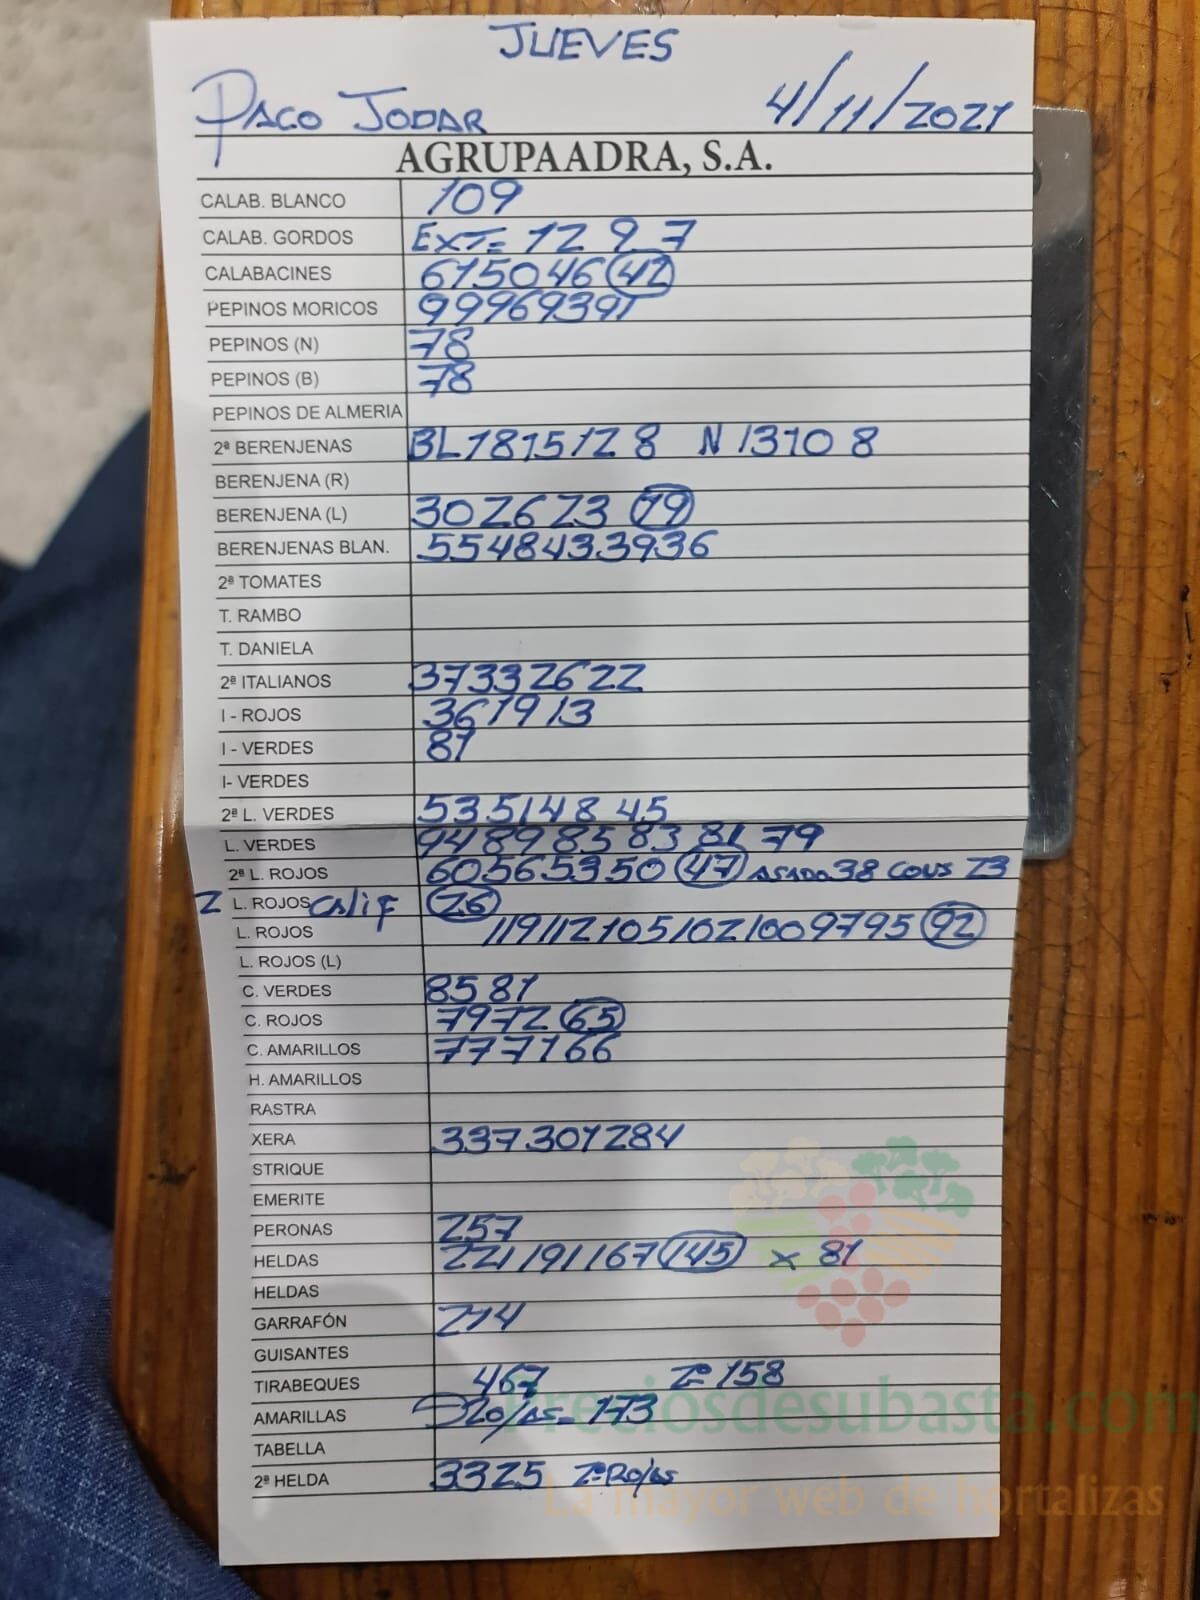 JUEVES
PACO JODAR 4/11/2021
AGRUPAADRA, S.A.
CALAB. BLANCO 109
CALAB. GORDOS EXT= 12 9 7
CALABACINES 615046 (42)
PEPINOS MORICOS 99969391
PEPINOS (N) 78
PEPINOS (B) 78
PEPINOS DE ALMERIA
2ª BERENJENAS BL 1815128 N 13108
BERENJENA (R)
BERENJENA (L) 302623 (19)
BERENJENAS BLAN. 5548433936
2ª TOMATES
T. RAMBO
T. DANIELA
2ª ITALIANOS 37332622
I - ROJOS 361913
I - VERDES 81
I- VERDES
2ª L. VERDES 53514845
L. VERDES 94 89 85 83 81 79
2ª L. ROJOS 60565350 (47) ASADO 38 CONS 23
2 L. ROJOS CALIF (26)
L. ROJOS 119 112 105 102 100 97 95 (92)
L. ROJOS (L)
C. VERDES 85 81
C. ROJOS 7972 (65)
C. AMARILLOS 777166
H. AMARILLOS
RASTRA
XERA 337301284
STRIQUE
EMERITE
PERONAS 257
HELDAS 221191167 (145) x 81
HELDAS
GARRAFÓN 214
GUISANTES
TIRABEQUES 467 2ª 158
AMARILLAS ROJAS= 173
Preciosdesubasta.com
TABELLA
2ª HELDA 3325 2ª Rojas
La mayor web de hortalizas